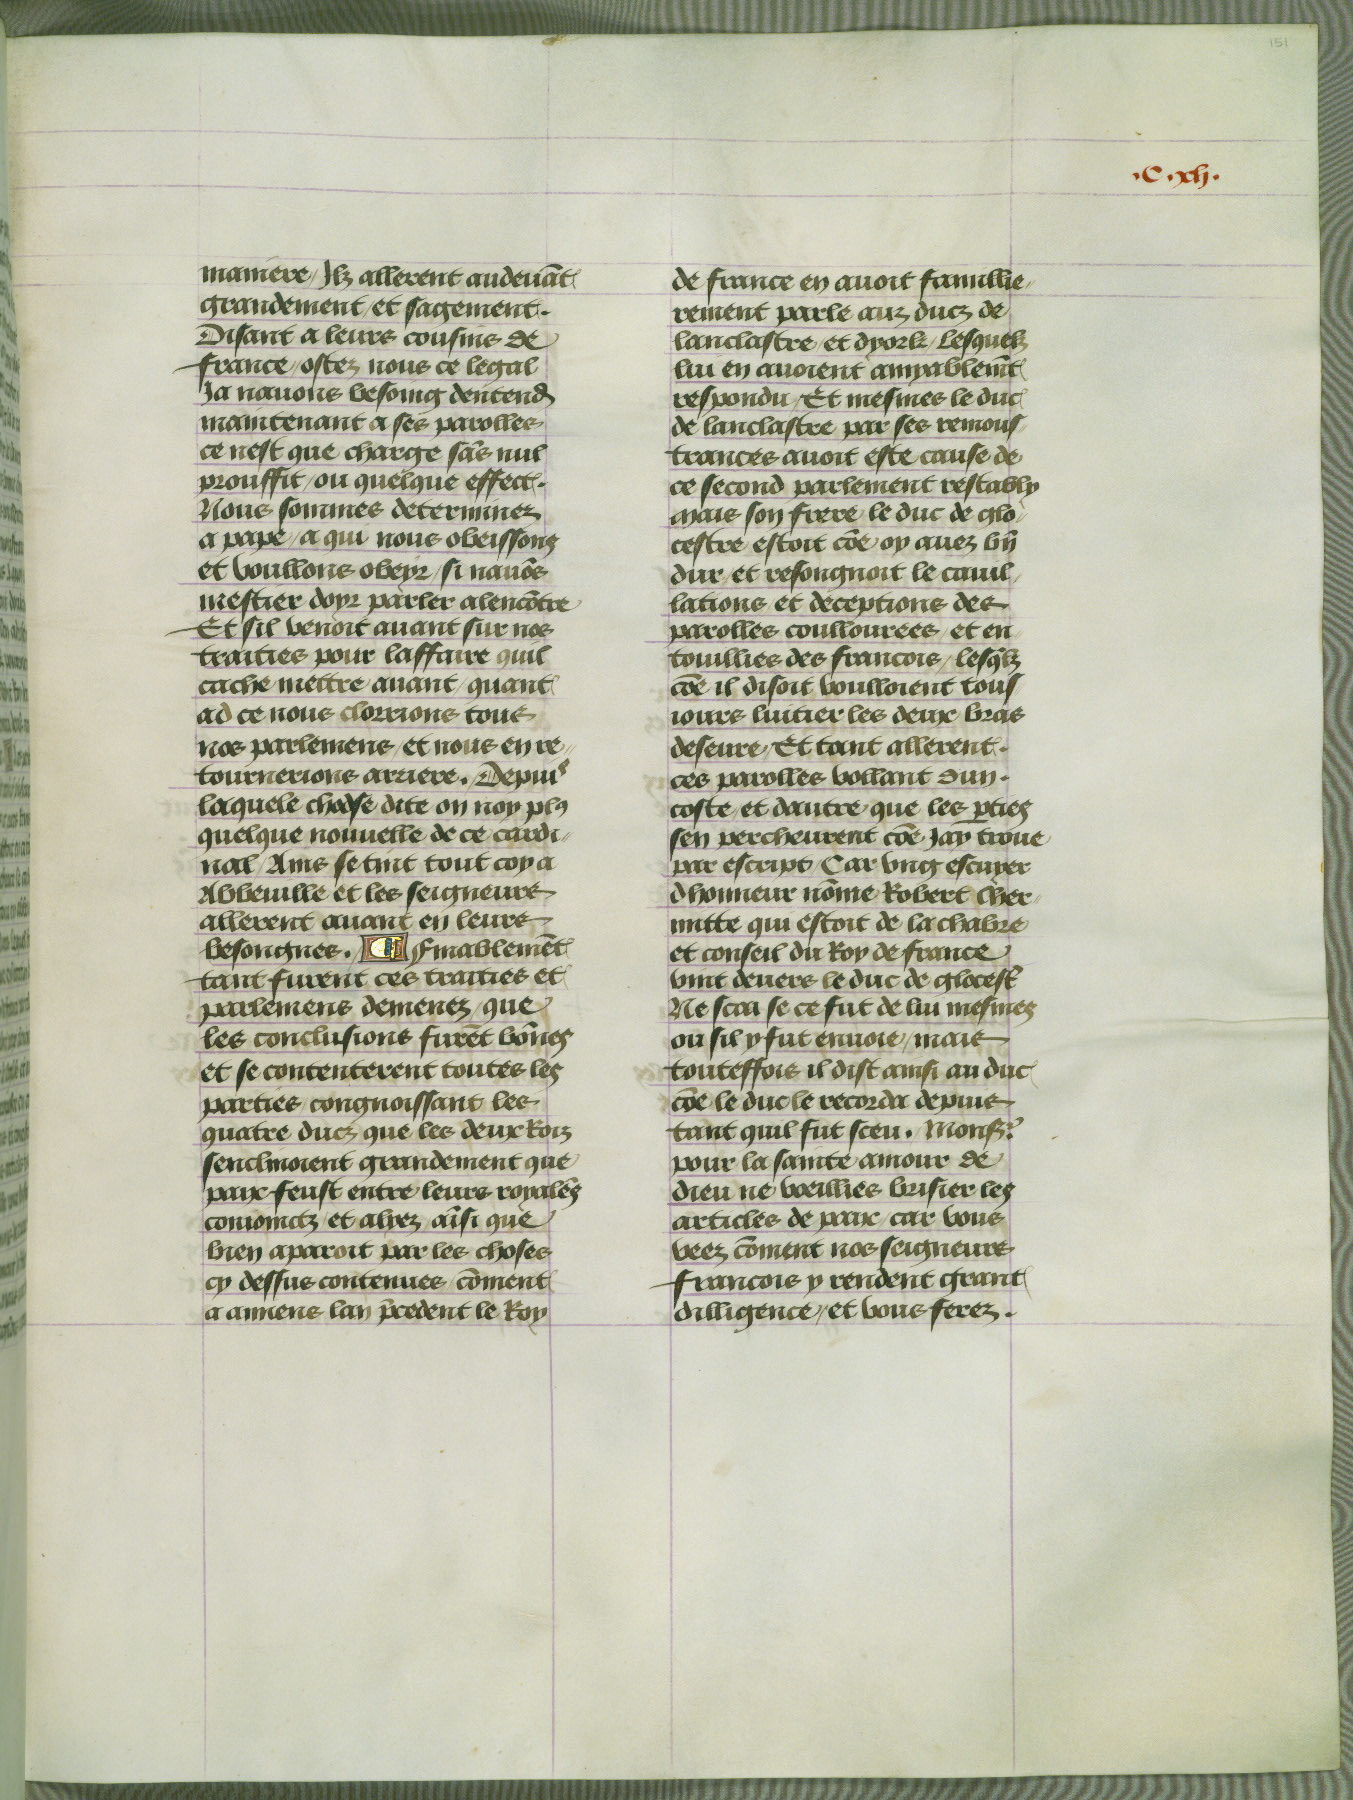 151
·C·xli·
maniere / Ilz allerent audeuãt
grandement / et sagement·
Disant a leurs cousins de
france / ostez nous ce legal
Ja nauons besoing dentend
maintenant a ses parolles
ce nest que charge sãs nul
prouffit / ou quelque effect·
Nous sommes determinez
a pape / a qui nous obeissons
et voullons obeyr / si nauõs
mestier doyr parler alencõtre
Et sil venoit auant sur nos
traities pour laffaire quil
cache mettre auant / quant
ad ce nous clorrions tous
nos parlemens / et nous en re〃
tournerions arriere. Depuis
laquele chose dite on noy plꝰ
quelque nouuelle de ce cardi〃
nal / Ains se tint tout coy a
Abbeuille et les seigneurs
allerent auant en leurs
besongnes. Finablemẽt
tant furent ces traities et
parlemens demenez / que
les conclusions furẽt bõnes
et se contenterent toutes les
parties / congnoissant les
quatre ducz que les deux Rois
senclinoient grandement que
paix feust entre leurs royalẽs
conioinctz / et alyez aĩsi que
bien aparoit par les choses
cy dessus contenues / cõment
a amiens lan p̃cedent le Roy
de france en auoit famillie〃
rement parle auz ducz de
lanclastre / et dyork / Lesquelz
lui en auoient amyablemẽt
respondu / Et mesmes le duc
de lanclastre par ses remous
trances auoit este cause de
ce second parlement restably
Mais son frere le duc de glo
cestre estoit cõe oy auez bñ
dur / et resongnoit le cauil
lations et deceptions des
parolles coullourees / et en
touillies des francois / lesq̃lz
cõe il disoit voulloient tous
iours luitier les deux bras
deseure / Et tant allerent·
ces parolles vollant dun·
coste et dautre que les pties
sen percheurent cõe Jay troue
par escript / Car vng escuyer
dhonneur nõme Robert lher〃
mitte qui estoit de la chãbre
et conseil du Roy de france
vint deuers le duc de glocest̃
Ne scai se ce fut de lui mesmes
ou sil y fut enuoie / mais
touteffois il dist ainsi au duc
cõe le duc le recorda depuis
tant quil fut sceu. Monsr̃
pour la sainte amour de
dieu ne voeillies brisier les
articles de paix / car vous
veez cõment nos seigneurs
francois y rendent grant
dilligence / et vous ferez·